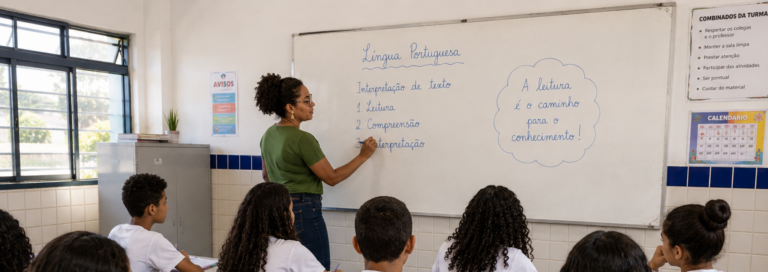 AVISOS
Língua Portuguesa
Interpretação de texto
1. Leitura
2. Compreensão
3. Interpretação
A leitura
é o caminho
para o
conhecimento!
COMBINADOS DA TURMA
• Respeitar os colegas
e o professor
• Manter a sala limpa
• Prestar atenção
• Participar das atividades
• Ser pontual
• Cuidar do material
CALENDÁRIO